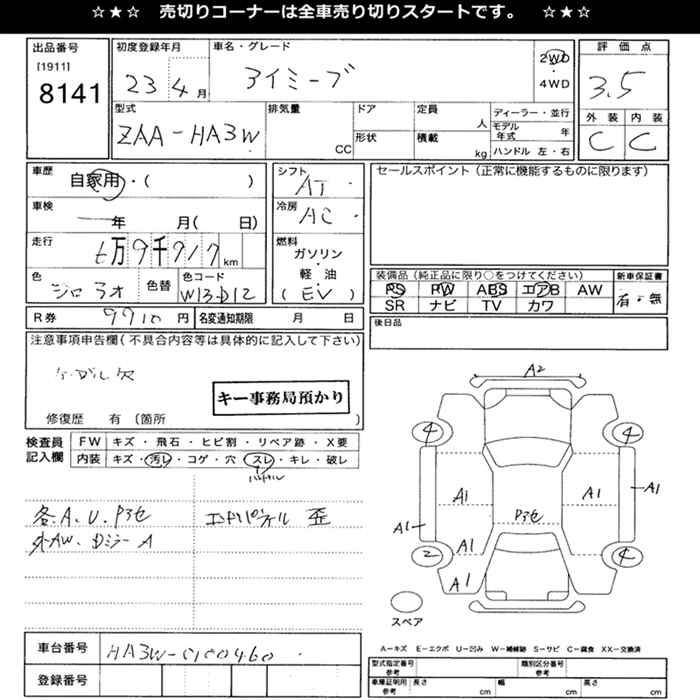 ☆★☆ 売切りコーナーは全車売り切りスタートです。 ☆★☆
出品番号
[1911]
8141
初度登録年月
23 4月
車名・グレード
アイミーブ
2WD
・
4WD
評価点
3.5
外装 内装
C C
型式
ZAA-HA3W
排気量
CC
ドア
形状
定員
人
積載
kg
ディーラー・並行
モデル年式 年
ハンドル 左・右
車歴
自家用・( )
車検
年 月( 日)
走行
万9千917km
色
シロ
色替
色コード
W13-D12
シフト
AT
冷房
AC
燃料
ガソリン
・
軽油
(EV)
セールスポイント(正常に機能するものに限ります)
装備品(純正品に限り○をつけてください)
PS PW ABS エアB AW
SR ナビ TV カワ
新車保証書
有・無
後日品
R券 9910円
名変通知期限 月 日
注意事項申告欄(不具合内容等は具体的に記入して下さい)
ケーブル欠
キー事務局預かり
修復歴 有(箇所 )
検査員
記入欄
FW キズ・飛石・ヒビ割・リペア跡・X要
内装 キズ・汚レ・コゲ・穴・スレ・キレ・破レ
ハンドル
各A.U.P3色
外AW.DミラーA
エンドパネル 歪
A2
4 4
A1 A1
A1 A1
P3色
A1
A1
2 4
スペア
A-キズ E-エクボ U-凹み W-補修跡 S-サビ C-腐食 XX-交換済
車台番号
HA3W-0100460
登録番号
型式指定番号
参考
類別区分番号
参考
車庫証明用
参考
長さ cm
幅 cm
高さ cm